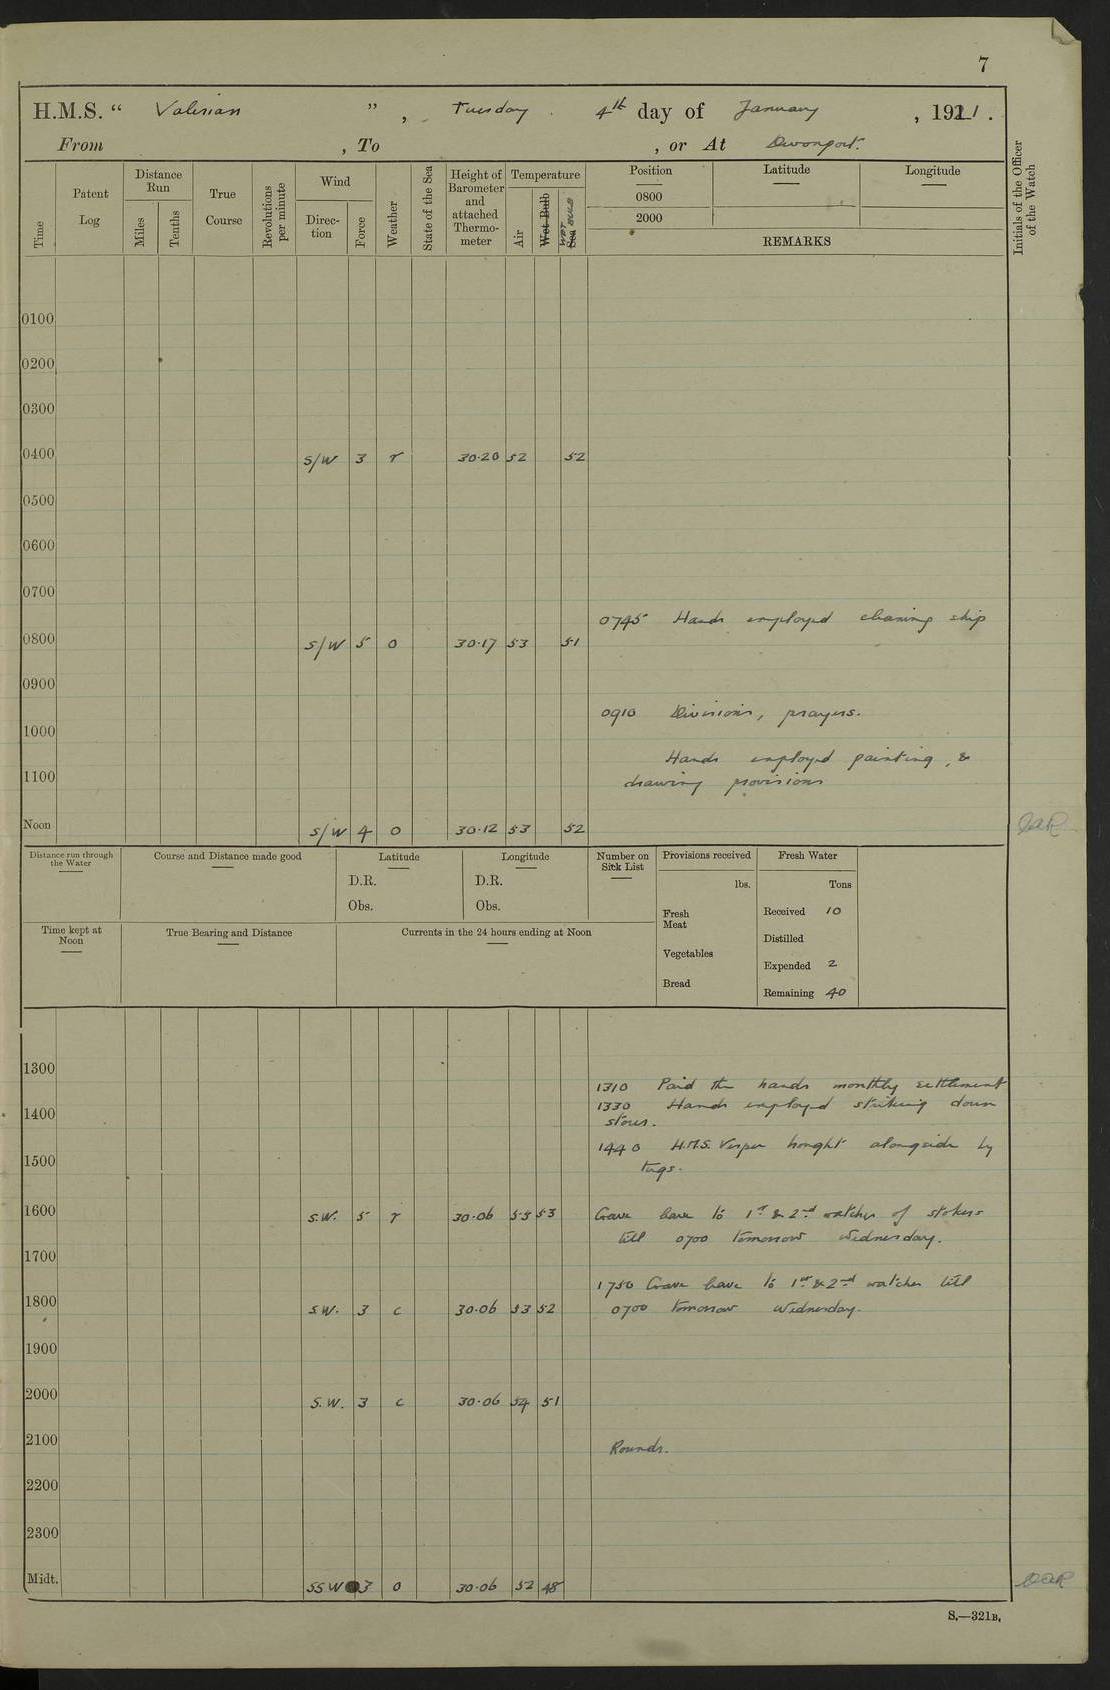 7
H.M.S. “ Valerian ” , Tuesday 4th day of January , 1921.
From , To , or At Devonport.
Time
Patent Log
Distance Run
Miles
Tenths
True Course
Revolutions per minute
Wind
Direc-tion
Force
Weather
State of the Sea
Height of Barometer and attached Thermo-meter
Temperature
Air
Wet Bulb
Sea
WET BULB
Position
0800
2000
Latitude
Longitude
REMARKS
Initials of the Officer of the Watch
0100
0200
0300
0400 S/W 3 r 30·20 52 52
0500
0600
0700
0745 Hands employed cleaning ship
0800 S/W 5 o 30·17 53 51
0900
0910 Divisions, prayers.
1000
Hands employed painting, &
1100 drawing provisions
Noon S/W 4 o 30·12 53 52
Distance run through the Water
Course and Distance made good
Latitude
D.R.
Obs.
Longitude
D.R.
Obs.
Number on Sick List
Provisions received
lbs.
Fresh Meat
Vegetables
Bread
Fresh Water
Tons
Received 10
Distilled
Expended 2
Remaining 40
Time kept at Noon
True Bearing and Distance
Currents in the 24 hours ending at Noon
1300
1310 Paid the hands monthly settlement
1400 1330 Hands employed striking down
stores.
1440 H.M.S. Vesper brought alongside by
1500 tugs.
1600 S.W. 5 r 30·06 55 53 Gave leave to 1st & 2nd watches of stokers
till 0700 tomorrow Wednesday.
1700
1750 Gave leave to 1st & 2nd watches till
1800 S.W. 3 c 30·06 53 52 0700 tomorrow Wednesday.
1900
2000 S.W. 3 c 30·06 54 51
2100 Rounds.
2200
2300
Midt. SSW 3 o 30·06 52 48
S.—321B.